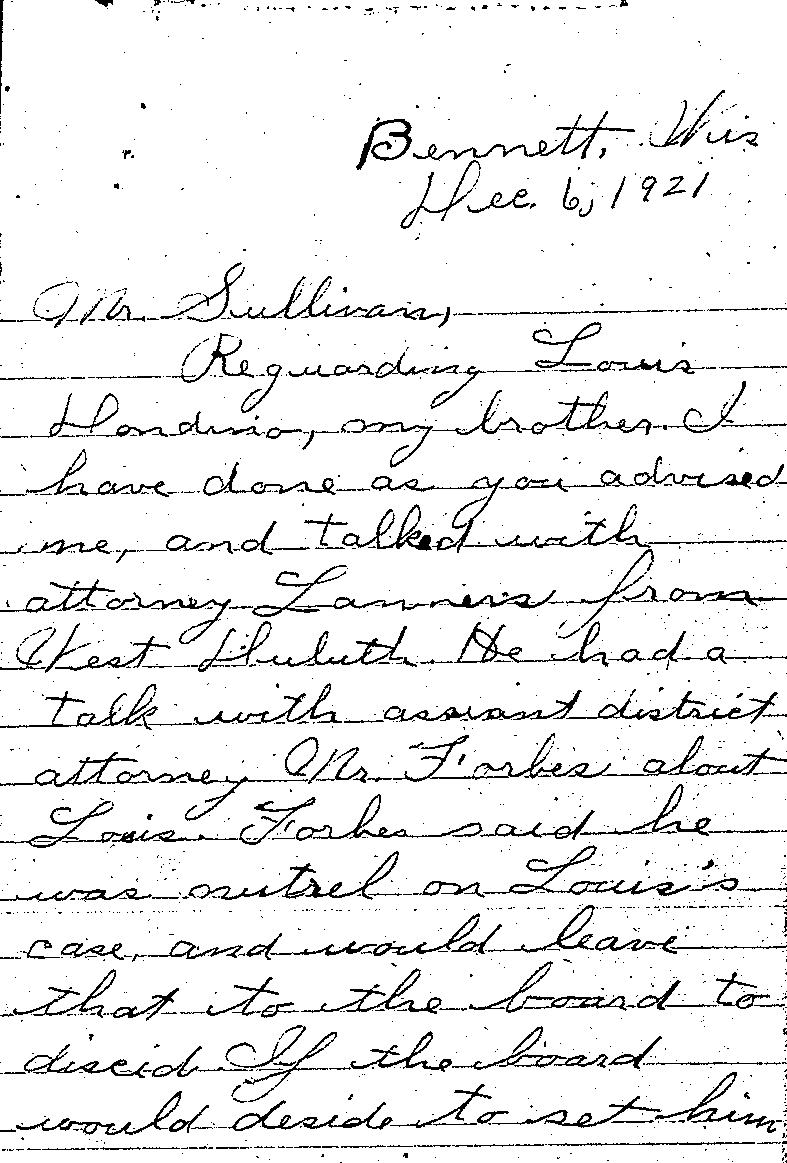 Bennett, Wis
Dec. 6, 1921
Mr. Sullivan,
Reguarding Louis
Dondino, my brother. I
have done as you advised
me, and talked with
attorney Lanners from
West Duluth. He had a
talk with assisant district
attorney Mr. Forbes about
Louis. Forbes said he
was nutrel on Louis's
case, and would leave
that to the board to
discid. If the board
would deside to set him